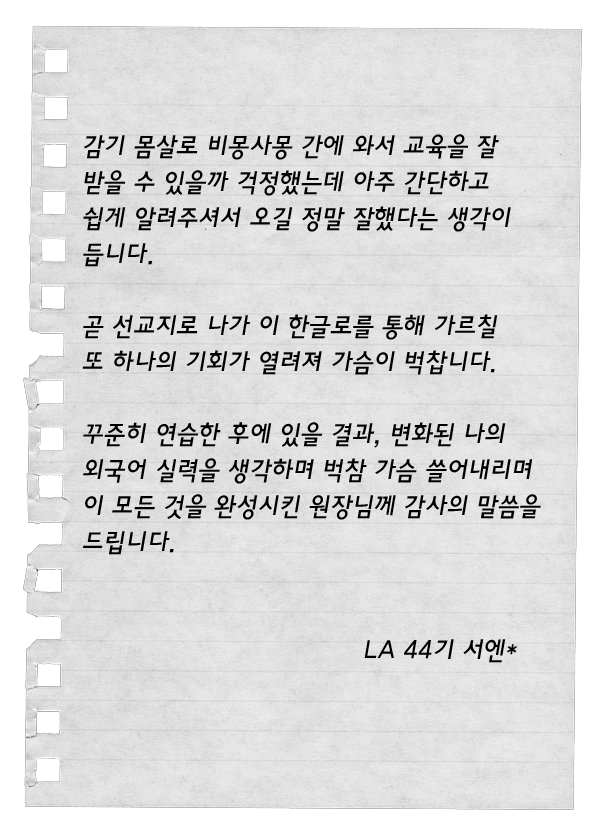 감기 몸살로 비몽사몽 간에 와서 교육을 잘
받을 수 있을까 걱정했는데 아주 간단하고
쉽게 알려주셔서 오길 정말 잘했다는 생각이
듭니다.
곧 선교지로 나가 이 한글로를 통해 가르칠
또 하나의 기회가 열려져 가슴이 벅찹니다.
꾸준히 연습한 후에 있을 결과, 변화된 나의
외국어 실력을 생각하며 벅참 가슴 쓸어내리며
이 모든 것을 완성시킨 원장님께 감사의 말씀을
드립니다.
LA 44기 서엔*